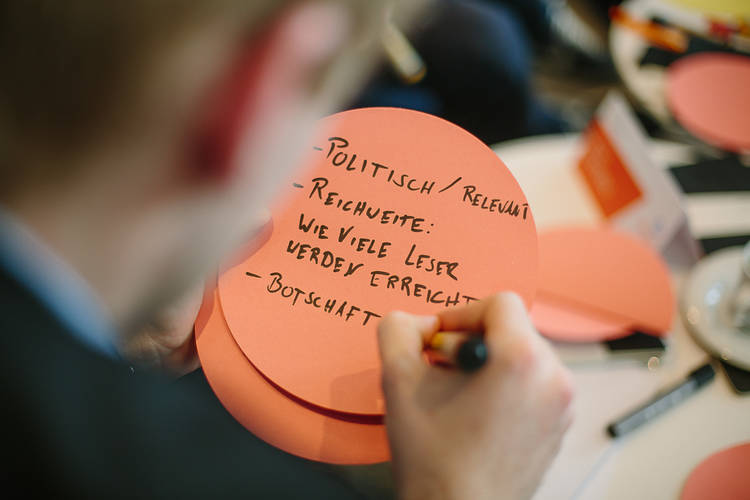 - POLITISCH / RELEVANT
- REICHWEITE:
WIE VIELE LESER
WERDEN ERREICHT
- BOTSCHAFT